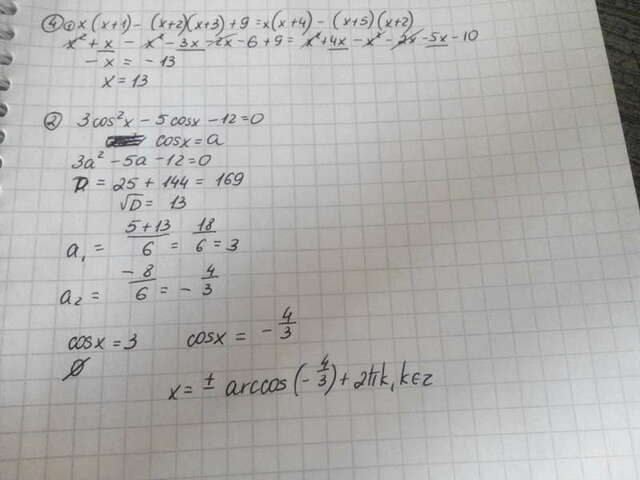 ④ ① x(x+1) - (x+2)(x+3) + 9 = x(x+4) - (x+5)(x+2)
x² + x - x² - 3x - 2x - 6 + 9 = x² + 4x - x² - 2x - 5x - 10
- x = - 13
x = 13
② 3cos²x - 5cosx - 12 = 0
cosx = a
3a² - 5a - 12 = 0
D = 25 + 144 = 169
√D = 13
a₁ = (5+13)/6 = 18/6 = 3
a₂ = -8/6 = - 4/3
cosx = 3 cosx = - 4/3
∅
x = ± arccos(- 4/3) + 2πk, k∈z